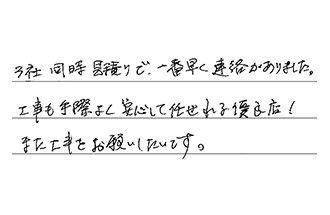 3社同時見積りで、一番早く連絡がありました。
工事も手際よく安心して任せれる優良店！
また工事をお願いしたいです。